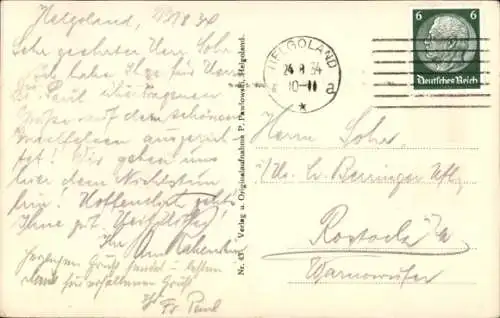 Helgoland, 23/8 34
Sehr geehrter Herr Sohr
Ich habe Ihre für Herrn
Dr. Paul übertragenen
Grüße auf dem schönen
Felsen ausgerich-
tet! Wir geben uns
hier dem Nichtstun
hin! Hoffentlich geht's
Ihnen gut.
Ihr
herzlichen Gruß sendet
dankt für erhaltenen Gruß
Fr Paul
Nr. 43. Verlag u. Originalaufnahme P. Pawlowski, Helgoland.
HELGOLAND
24 8 34
10-11
a
6 6
Deutsches Reich
Herrn Sohr
Beringer
Rostock i/M
Warnowufer